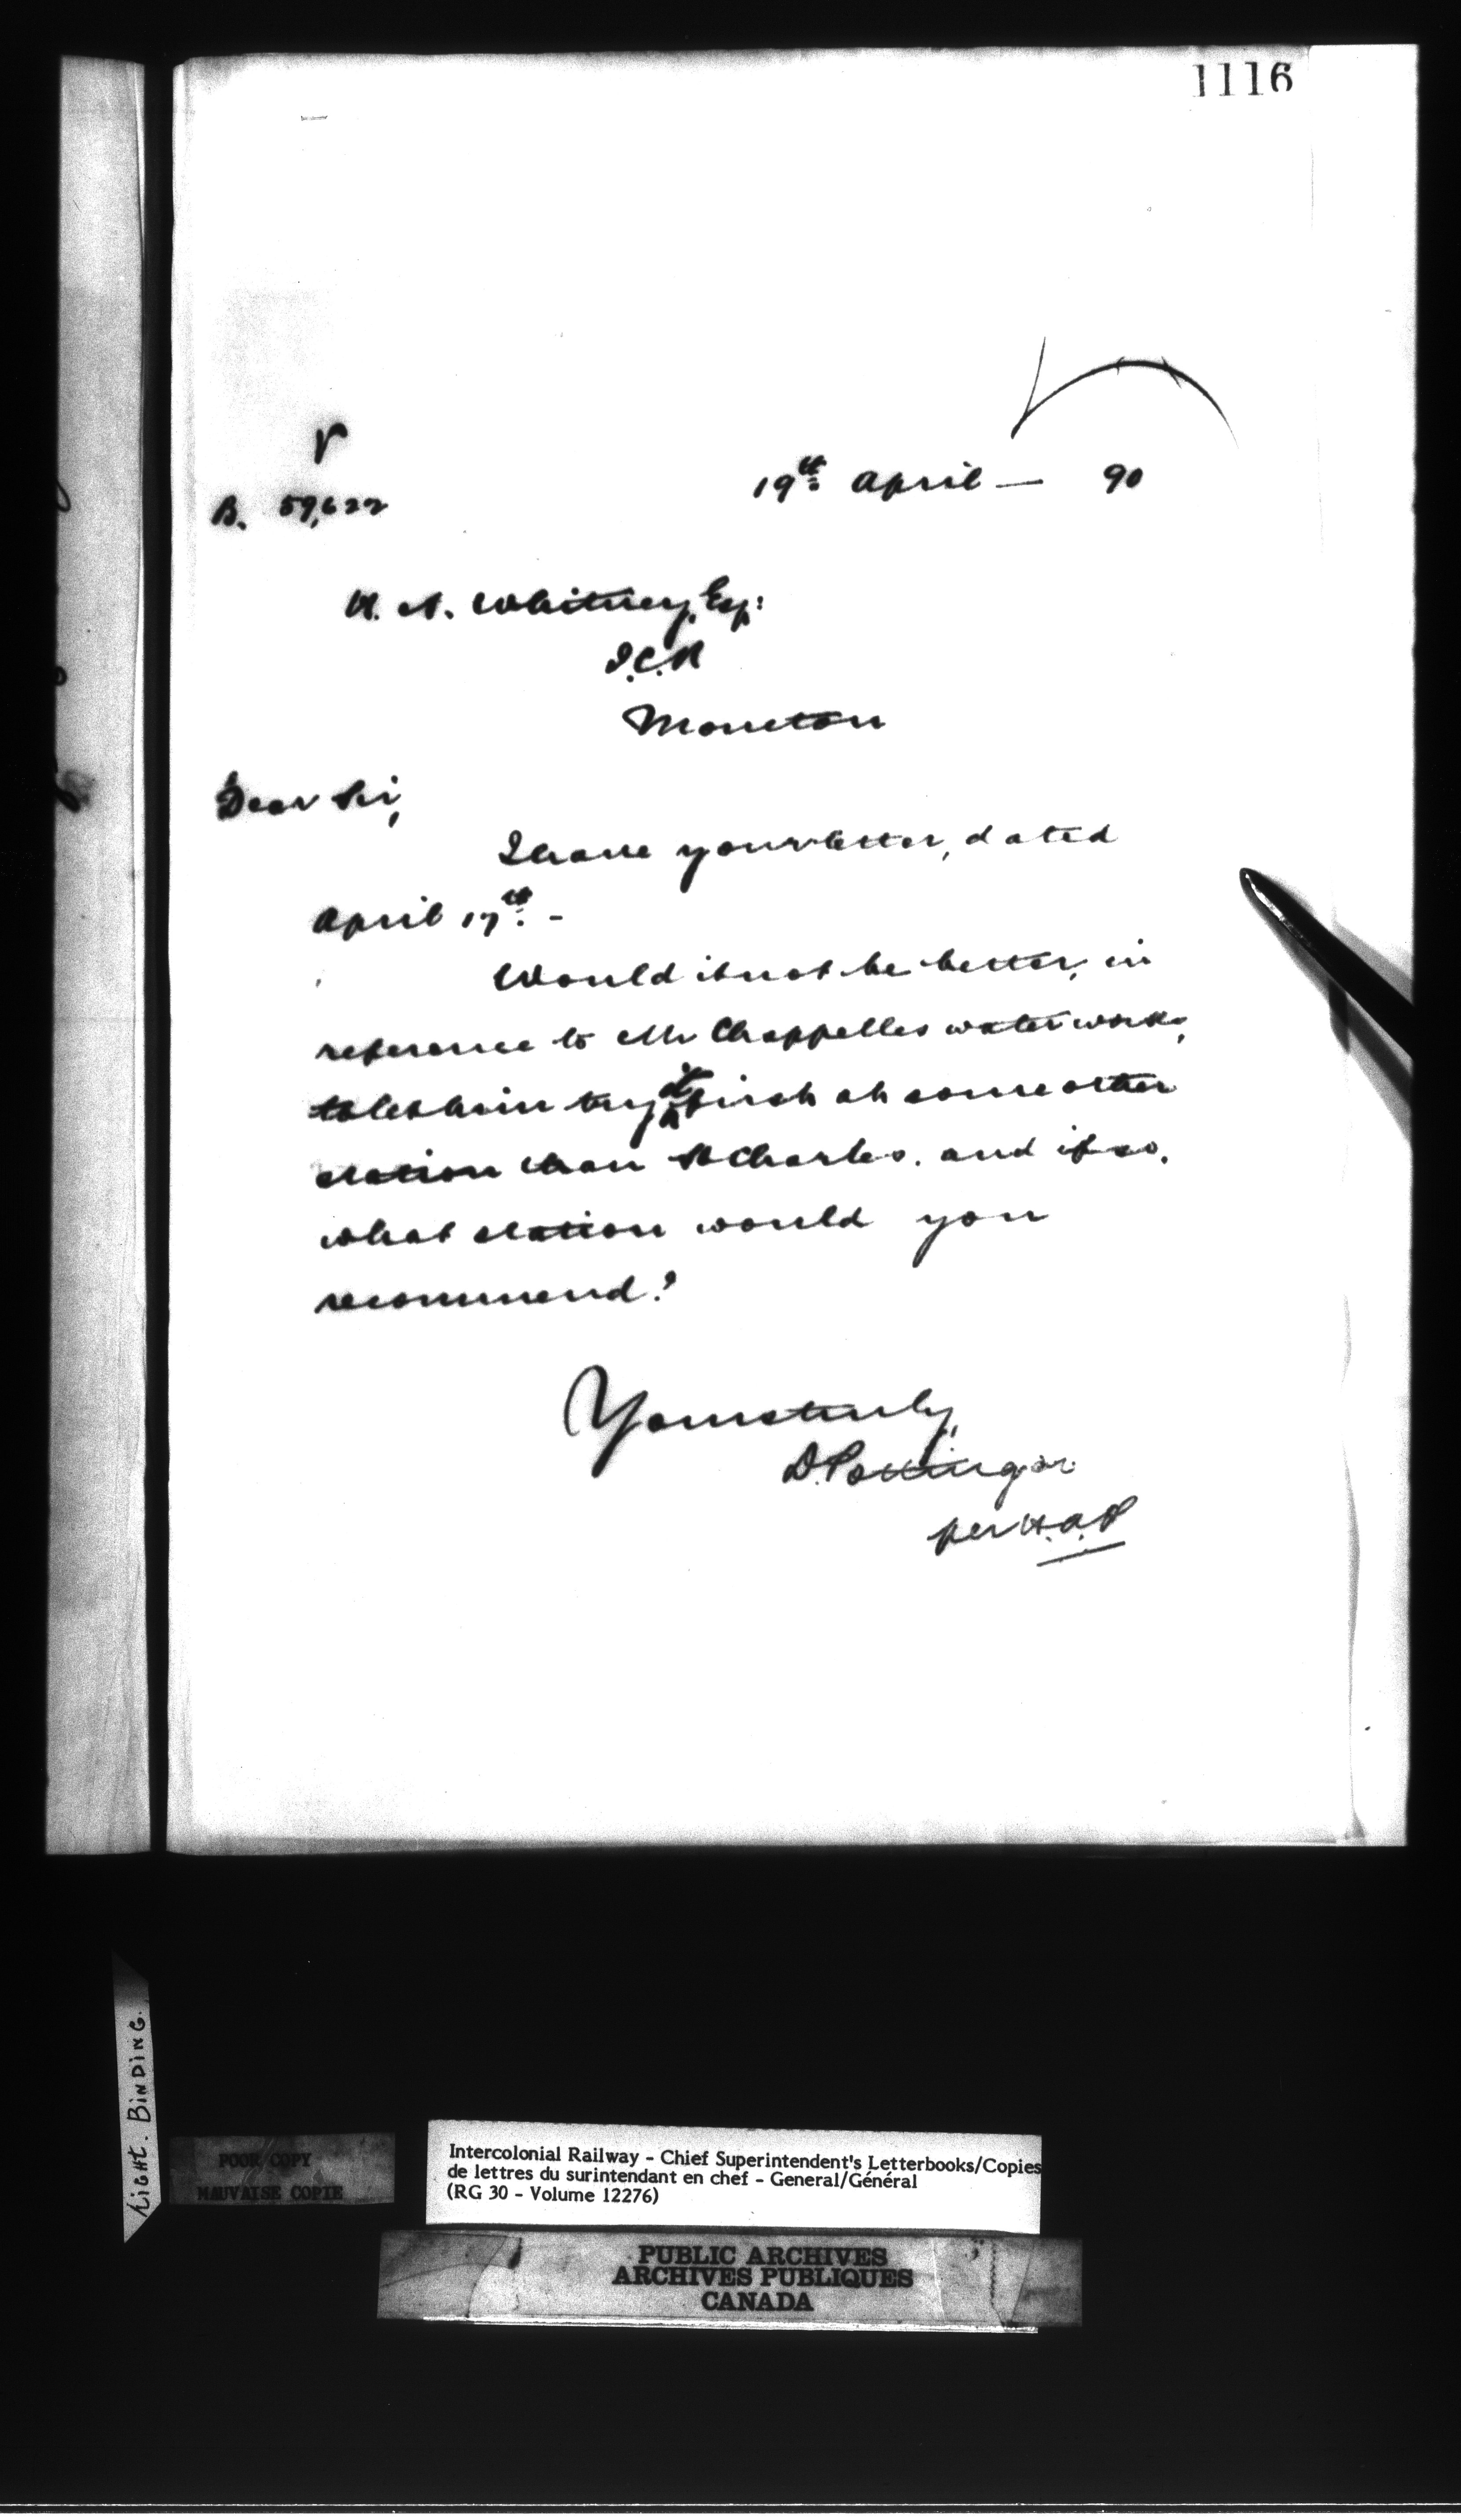 1116
19th April — 90
B. 59,622
H. A. Whitney, Esq:
I.C.R
Moncton
Dear Sir,
I have your letter, dated
April 17th. -
Would it not be better, in
reference to Mr Chappelles water works,
to let him try it first at some other
station than St Charles. and if so,
what station would you
recommend?
Yours truly,
D. Pottinger
per H.A.P
LIGHT. BINDING.
POOR COPY
MAUVAISE COPIE
Intercolonial Railway - Chief Superintendent's Letterbooks/Copies
de lettres du surintendant en chef - General/Général
(RG 30 - Volume 12276)
PUBLIC ARCHIVES
ARCHIVES PUBLIQUES
CANADA